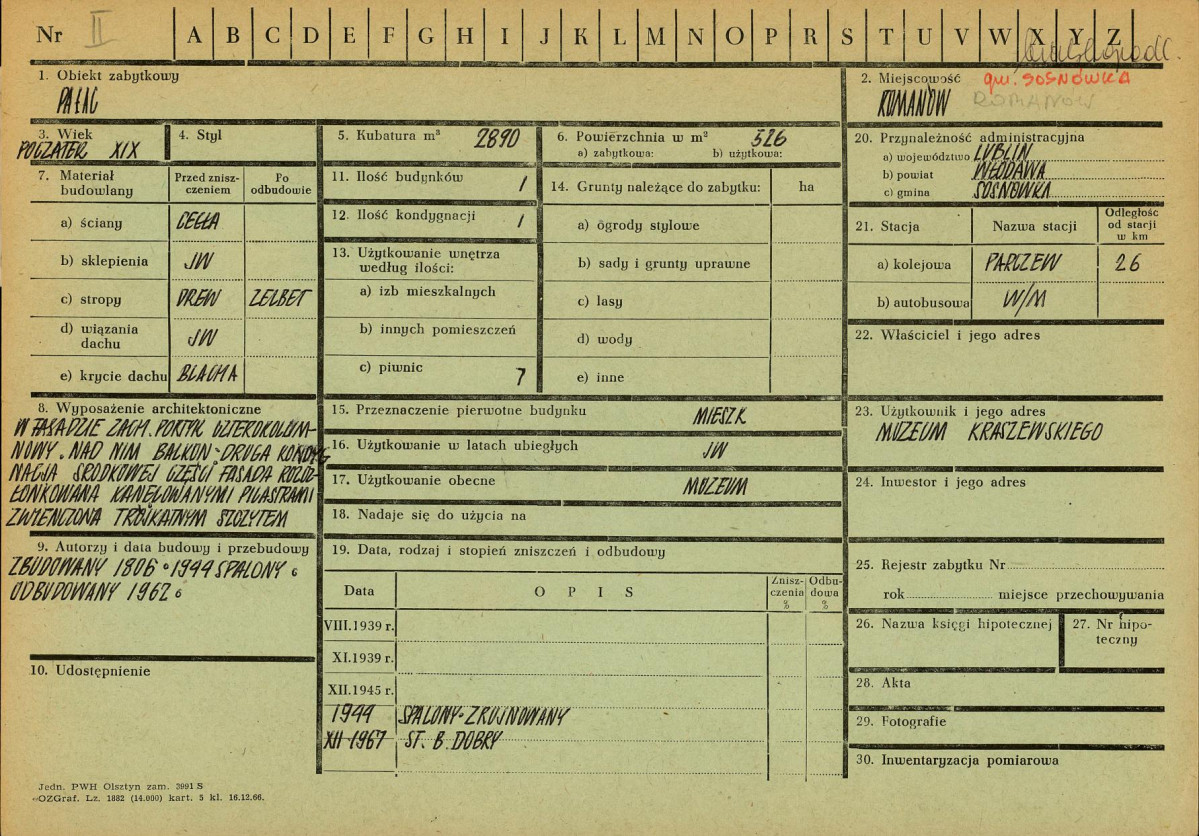 Nr II A B C D E F G H I J K L M N O P R S T U V W X Y Z
1. Obiekt zabytkowy
PAŁAC
2. Miejscowość gm. SOSNÓWKA
ROMANÓW ROMANÓW
3. Wiek
POCZĄTEK XIX
4. Styl
5. Kubatura m³ 2890
6. Powierzchnia w m² 526
a) zabytkowa: b) użytkowa:
20. Przynależność administracyjna
a) województwo LUBLIN
b) powiat WŁODAWA
c) gmina SOSNÓWKA
7. Materiał budowlany
Przed znisz-
czeniem
Po
odbudowie
a) ściany CEGŁA
b) sklepienia JW
c) stropy DREW ŻELBET
d) wiązania
dachu JW
e) krycie dachu BLACHA
11. Ilość budynków 1
12. Ilość kondygnacji 1
13. Użytkowanie wnętrza
według ilości:
a) izb mieszkalnych
b) innych pomieszczeń
c) piwnic 7
14. Grunty należące do zabytku: ha
a) ogrody stylowe
b) sady i grunty uprawne
c) lasy
d) wody
e) inne
21. Stacja Nazwa stacji Odległość
od stacji
w km
a) kolejowa PARCZEW 26
b) autobusowa W/M
22. Właściciel i jego adres
8. Wyposażenie architektoniczne
W FASADZIE ZACH. PORTYK CZTEROKOLUM-
NOWY. NAD NIM BALKON. DRUGA KONDYG
NACJA ŚRODKOWEJ CZĘŚCI FASADA ROZCZ-
ŁONKOWANA KANELOWANYMI PILASTRAMI
ZWIEŃCZONA TRÓJKĄTNYM SZCZYTEM
15. Przeznaczenie pierwotne budynku MIESZK
16. Użytkowanie w latach ubiegłych JW
17. Użytkowanie obecne MUZEUM
18. Nadaje się do użycia na
23. Użytkownik i jego adres
MUZEUM KRASZEWSKIEGO
24. Inwestor i jego adres
9. Autorzy i data budowy i przebudowy
ZBUDOWANY 1806. 1944 SPALONY.
ODBUDOWANY 1962.
10. Udostępnienie
19. Data, rodzaj i stopień zniszczeń i odbudowy
Data OPIS Znisz-
czenia
% Odbu-
dowa
%
VIII.1939 r.
XI.1939 r.
XII.1945 r.
1944 SPALONY-ZRUJNOWANY
XII 1967 ST. B. DOBRY
25. Rejestr zabytku Nr
rok miejsce przechowywania
26. Nazwa księgi hipotecznej
27. Nr hipo-
teczny
28. Akta
29. Fotografie
30. Inwentaryzacja pomiarowa
Jedn. PWH Olsztyn zam. 3991 S
OZGraf. Lz. 1882 (14.000) kart. 5 kl. 16.12.66.